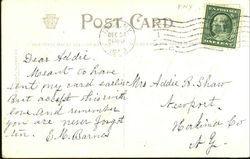 POST CARD
DEC 24
Dear Addie.
Meant to have
sent my card earlier
But accept this with
love and remember
you are never forgot
ten. E. M. Barnes
Mrs Addie R. Shaw
Newport
Herkimer Co
N.Y.